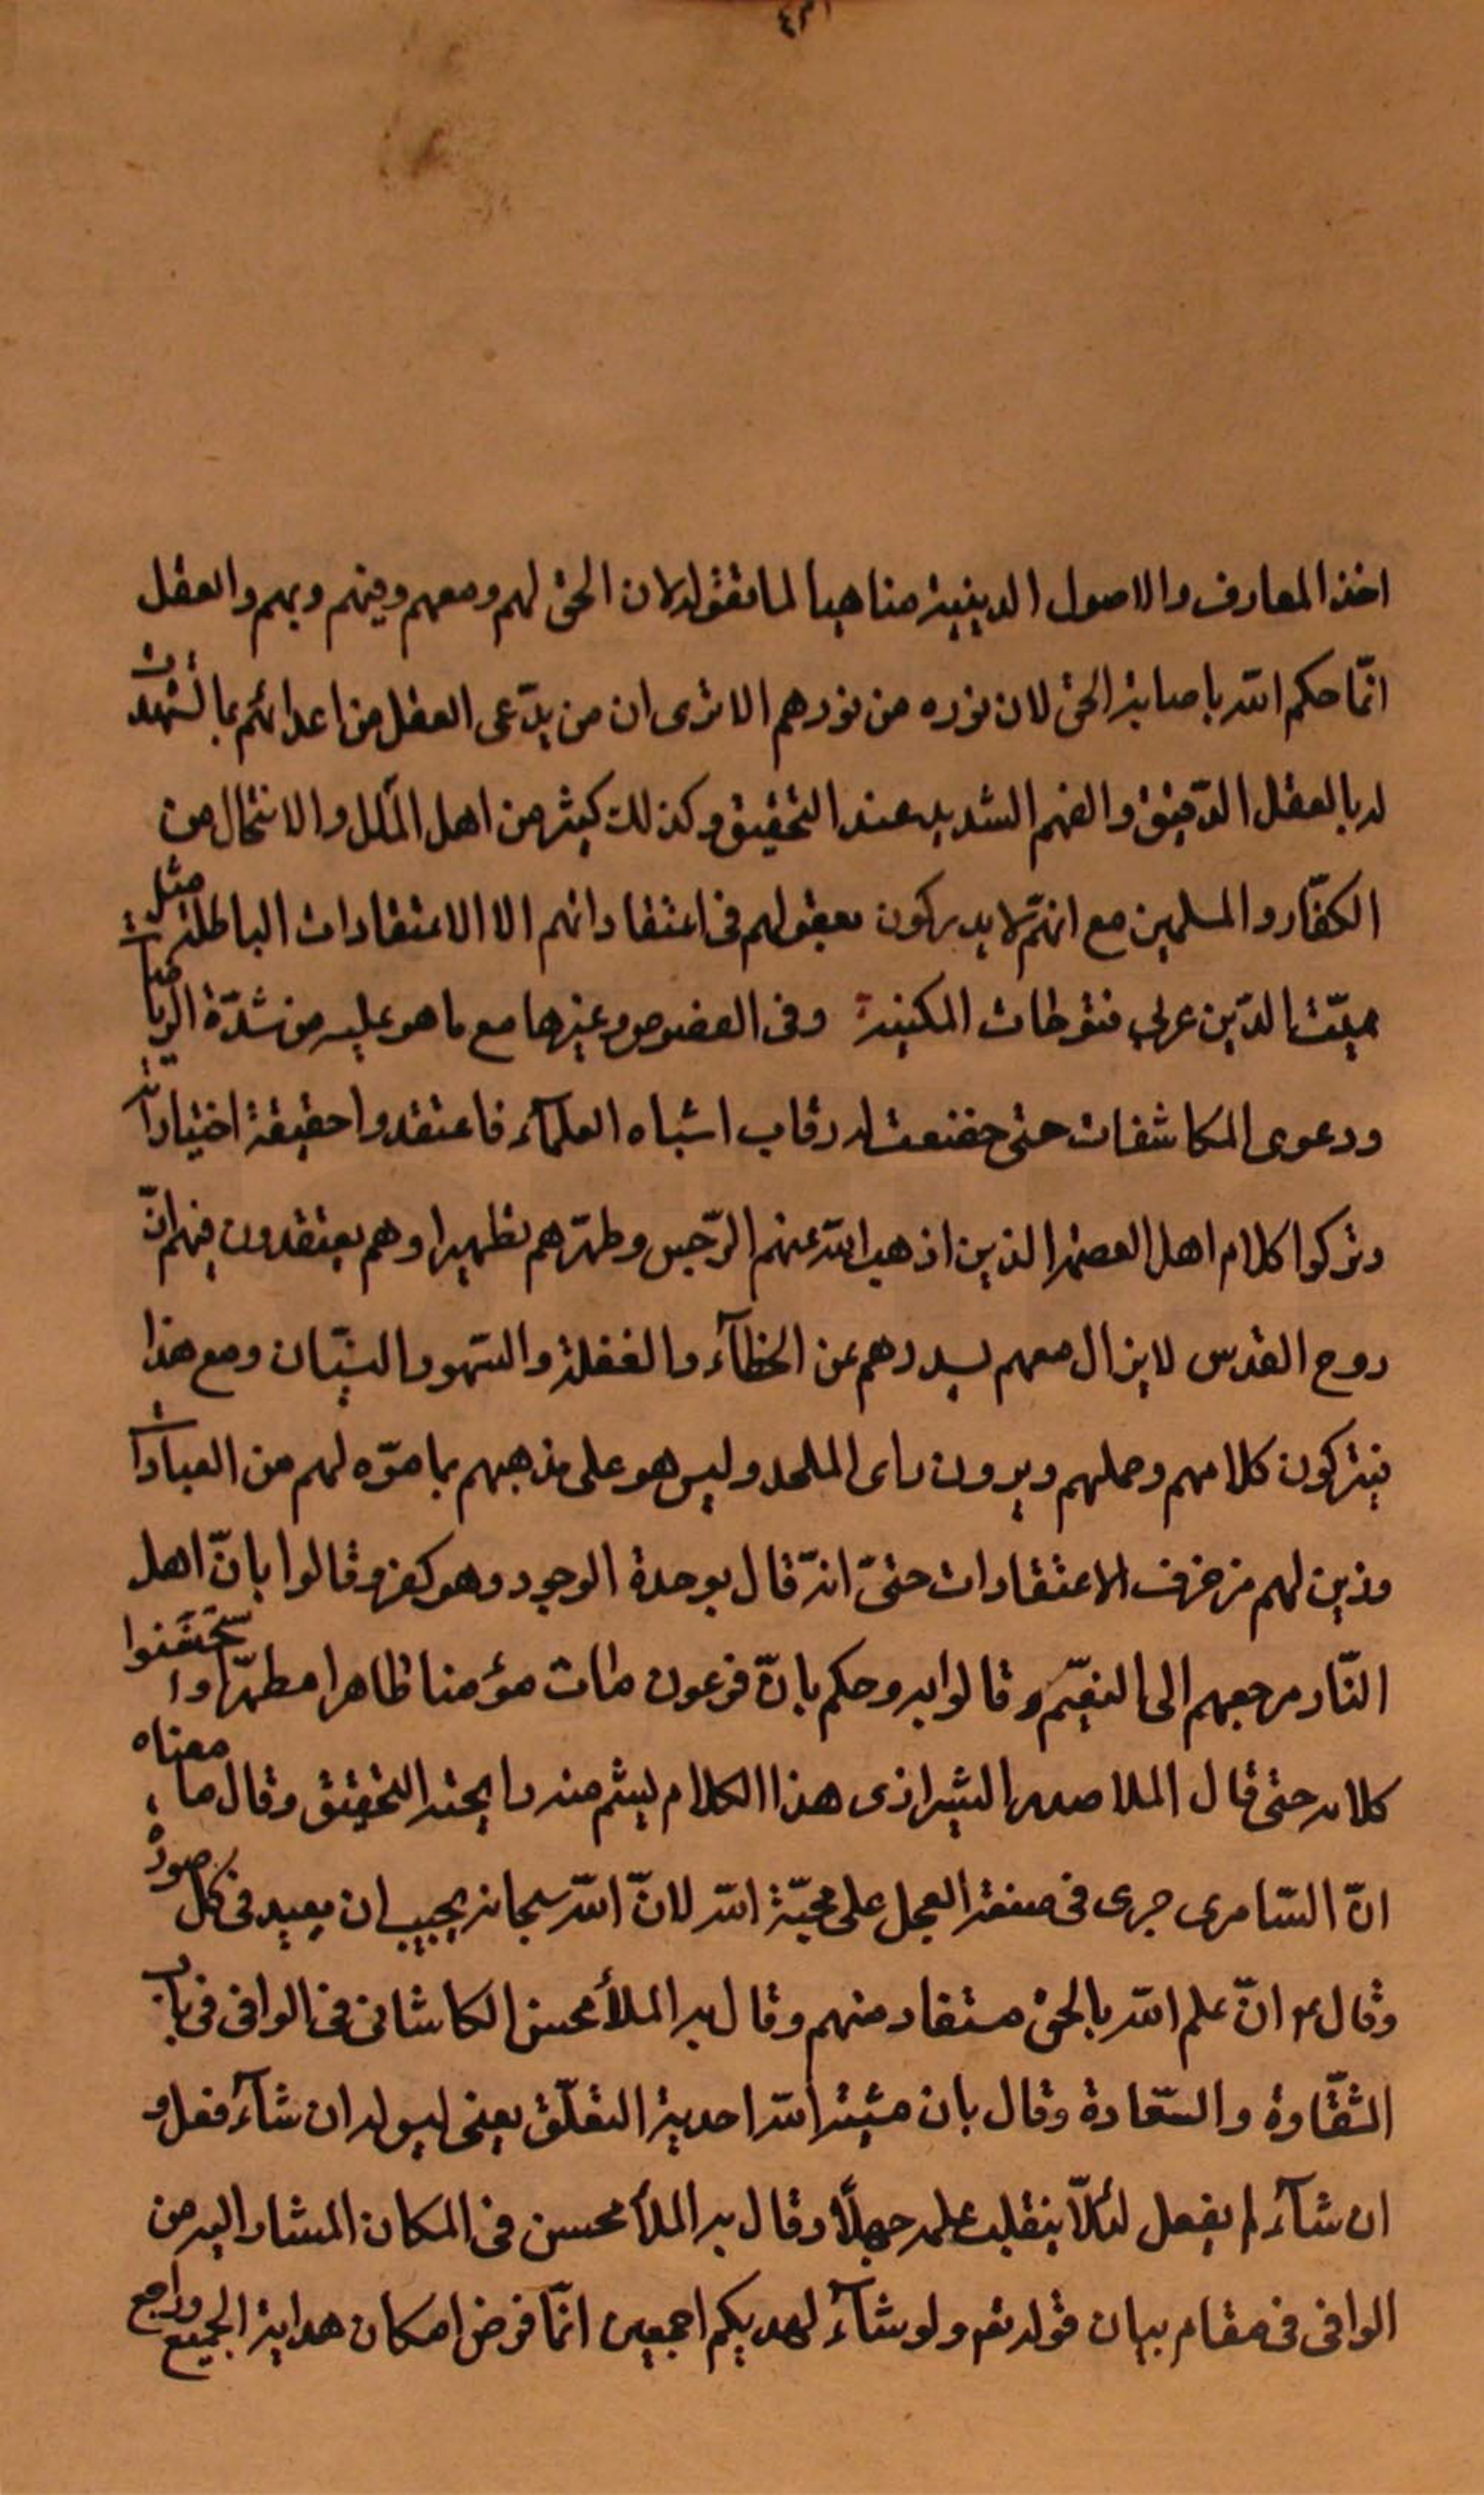 اخذ المعارف والاصول الدينية مناهيا لما تقوله لان الحق لهم ومعهم وفيهم وبهم والعقل
انّما حكم الله باصابة الحق لان نوره من نورهم الا ترى ان من يدّعى العقل من اعدائهم بما تشهد
له بالعقل الدّقيق والفهم الشديد عند التحقيق وكذلك كثير من اهل الملل والانتحال من
الكفّار والمسلمين مع انهم لا يدركون بعقولهم فى اعتقاداتهم الا الاعتقادات الباطلة مثل
مميّت الدّين عربي فتوحات المكية وفى الفصوص وغيرها مع ما هو عليه من شدّة الرياضات
ودعوى المكاشفات حتى خضعت له رقاب اشباه العلمآء فاعتقدوا حقيقة اختياراته
وتركوا كلام اهل العصمة الذين اذهب الله عنهم الرّجس وطهّرهم تطهيرا وهم يعتقدون فيهم انّ
روح القدس لا يزال معهم يسددهم عن الخطآء والغفلة والسّهو والنسيان ومع هذا
يتركون كلامهم وعملهم ويرون راى الملحد وليس هو على مذهبهم بما موّه لهم من العبارات
وزين لهم مزخرف الاعتقادات حتىّ انّه قال بوحدة الوجود وهو كفر وقالوا بانّ اهل
النّار مرجعهم الى النعيم وقالوا به وحكم بانّ فرعون مات مؤمنا طاهرا مطهّرا واستحسنوا
كلامه حتى قال الملا صدرا الشيرازى هذا الكلام يشم منه رايحة التحقيق وقال ما معناه
انّ السّامرى جرى فى صنعة العجل على محبّة الله لانّ الله سبحانه يحب ان يعبد فى كل صورة
وقال ان علم الله بالحق مستفاد منهم وقال به الملا محسن الكاشانى فى الوافى فى باب
الشّقاوة والسّعادة وقال بان مشية الله احدية التعلّق يعنى ليس له ان شآء فعل و
ان شآء لم يفعل لئلّا ينقلب علمه جهلًا وقال به الملا محسن فى المكان المشار اليه من
الوافى فى مقام بيان قوله تعـ ولو شآء لهديكم اجمعين انّما فرض امكان هداية الجميع وراجع